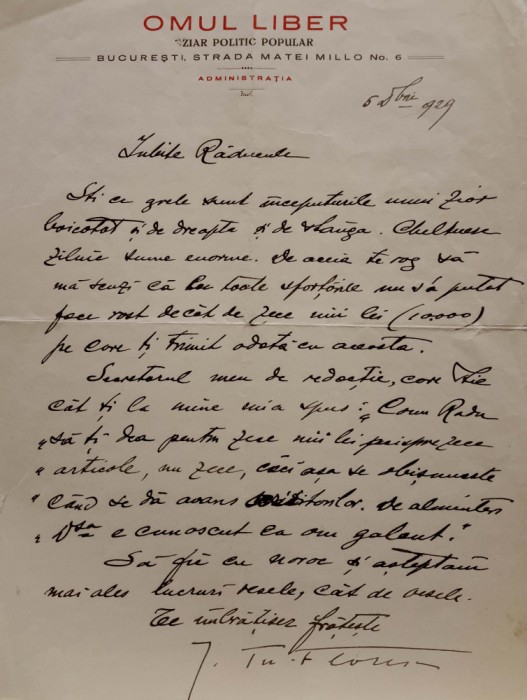 OMUL LIBER
ZIAR POLITIC POPULAR
BUCUREȘTI, STRADA MATEI MILLO No. 6
ADMINISTRAȚIA
5 Xbrie 1929
Iubite Răducule
Știi ce grele sunt începuturile unui ziar
boicotat și de dreapta și de stânga. Cheltuesc
zilnic sume enorme. De aceia te rog să
mă scuzi că cu toate sforțările nu s'a putut
face rost decât de zece mii lei (10.000)
pe care ți trimit odată cu aceasta.
Secretarul meu de redacție, care ție
cât și la mine mi-a spus: „Conu Radu
„să ți dea pentru zece mii lei paisprezece
„articole, nu zece, căci așa se obișnuește
„când se dă avans. De alminteri
„Dsa e cunoscut ca om galant."
Să fii cu noroc și așteptăm
mai ales lucruri vesele, cât de vesele.
Te îmbrățișez frățește